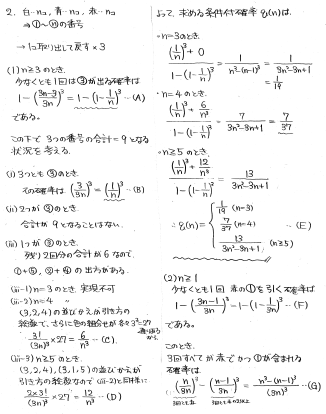 2. 白…nコ, 青…nコ, 赤…nコ
⇒ ①〜ⓝの番号
→ 1コ取り出して戻す×3
(1) n≧3のとき
少なくとも1回は③が出る確率は
1-(\frac{3n-3}{3n})^3 = 1-(1-\frac{1}{n})^3 …(A)
である。
この下で 3つの番号の合計=9となる
状況を考える.
(i) 3つとも③のとき.
その確率は (\frac{3}{3n})^3 = (\frac{1}{n})^3 …(B)
(ii) 2つが③のとき.
合計が9となることはない.
(iii) 1つが③のとき
残り2回分の合計が6なので.
①+⑤, ②+④の出方がある.
(iii-1) n=3のとき. 実現不可
(iii-2) n=4
(3,2,4)の並びかえが引き方の
総数で、さらに色の組合せが各々3^3=27
\frac{3!}{(3n)^3}×27 = \frac{6}{n^3} …(C).
(iii-3) n≧5のとき.
(3,2,4), (3,1,5)の並びかえが
引き方の総数なので(iii-2)と同様に
\frac{2×3!}{(3n)^3}×27 = \frac{12}{n^3} …(D)
よって, 求める条件付確率 q(n)は.
・n=3のとき.
\frac{(\frac{1}{n})^3+0}{1-(1-\frac{1}{n})^3} = \frac{1}{n^3-(n-1)^3} = \frac{1}{3n^2-3n+1}
= \frac{1}{19}
・n=4のとき.
\frac{(\frac{1}{n})^3+\frac{6}{n^3}}{1-(1-\frac{1}{n})^3} = \frac{7}{3n^2-3n+1} = \frac{7}{37}
・n≧5のとき
\frac{(\frac{1}{n})^3+\frac{12}{n^3}}{1-(1-\frac{1}{n})^3} = \frac{13}{3n^2-3n+1}
∴ q(n) = { \frac{1}{19} (n=3)
\frac{7}{37} (n=4) …(E)
\frac{13}{3n^2-3n+1} (n≧5)
(2) n≧1
少なくとも1回 赤の①を引く確率は
1-(\frac{3n-1}{3n})^3 = 1-(1-\frac{1}{3n})^3 …(F)
である.
このとき.
3回すべてが赤でかつ①が含まれる
確率は.
(\frac{n}{3n})^3 - (\frac{n-1}{3n})^3 = \frac{n^3-(n-1)^3}{(3n)^3} …(G)